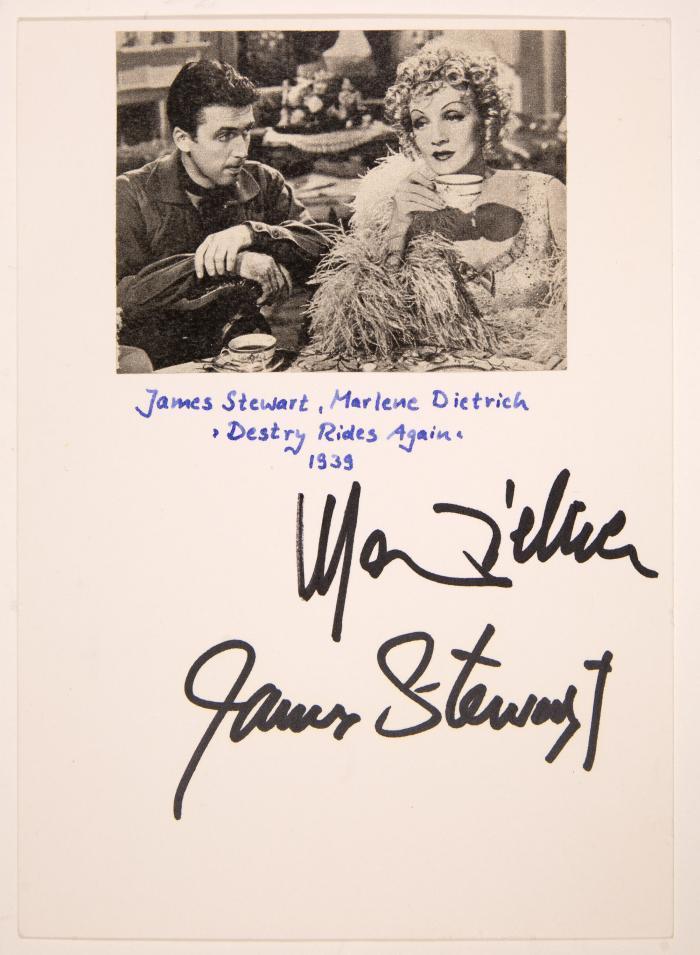 James Stewart, Marlene Dietrich
› Destry Rides Again ‹
1939
James Stewart